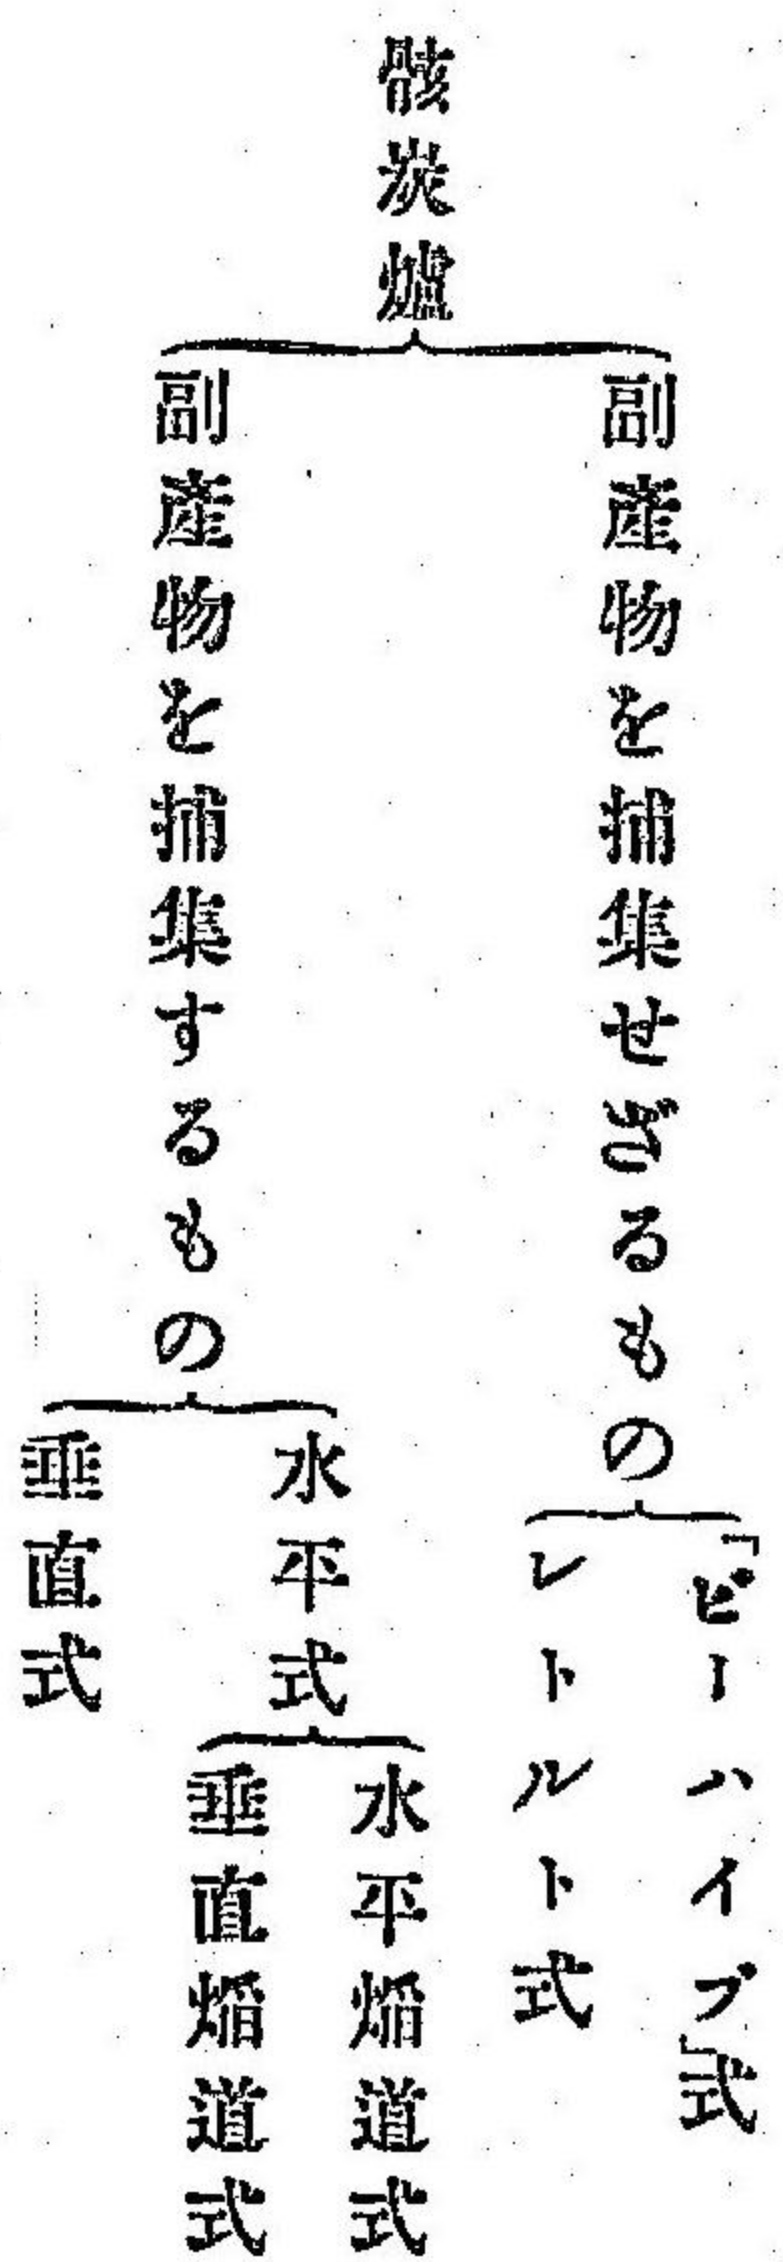 骸炭爐
副産物を捕集せざるもの
「ビーハイブ」式
レトルト式
副産物を捕集するもの
水平式
水平焔道式
垂直焔道式
垂直式